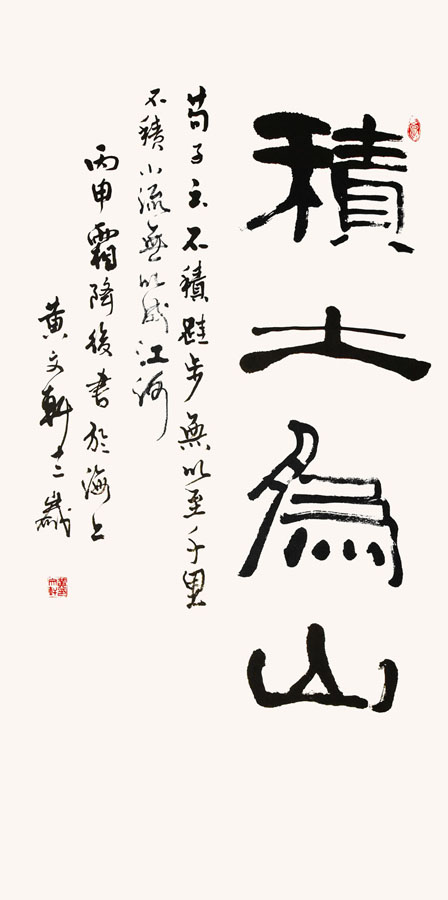 積土為山
荀子云不積跬步無以至千里
不積小流無以成江河
丙申霜降後書於海上
黄文軒十二歲